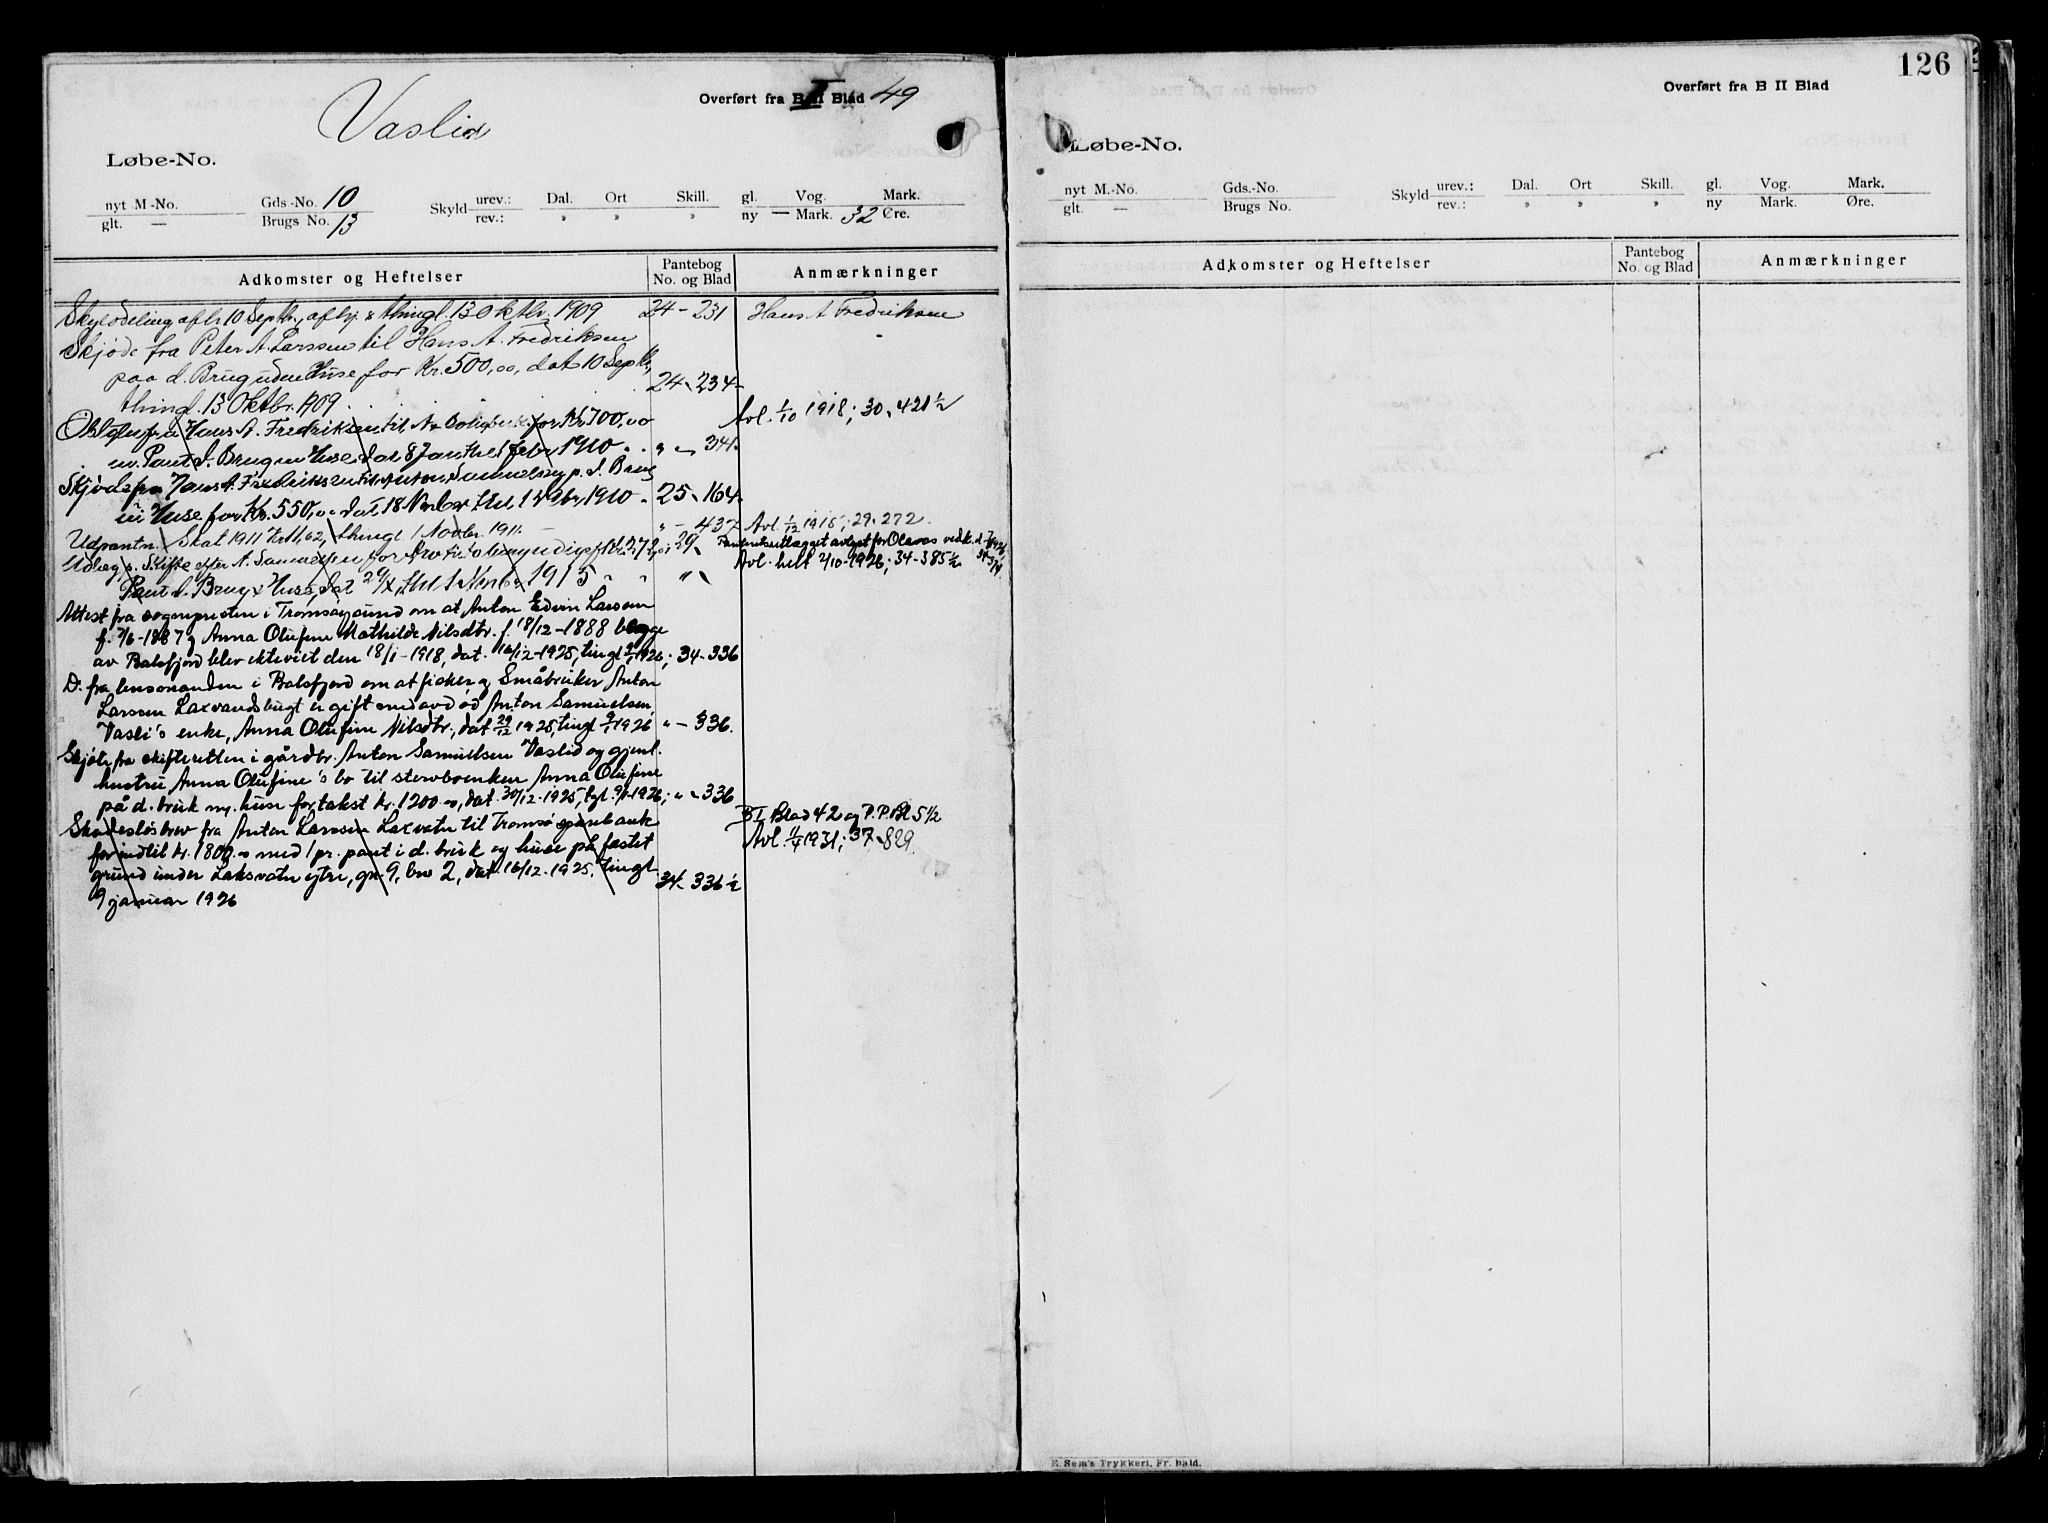 Overført fra B I Blad 49
Vaslid
Løbe-No.
nyt M-No. Gds.-No. 10 Skyld urev.: Dal. Ort Skill. gl. Vog. Mark.
glt. — Brugs No. 13 rev.: " " " ny — Mark. 32 Øre.
Adkomster og Heftelser Pantebog No. og Blad Anmærkninger
Skylddeling afh. 10 Septbr., afhj. & thingl. 13 Oktbr. 1909 24 - 231 Hans A Fredriksen
Skjøde fra Peter A. Larssen til Hans A. Fredriksen
paa d. Brug uden Huse for Kr. 500,00, dat 10 Septbr,
thingl. 13 Oktbr. 1909 24 - 234
Obl fra Hans A. Fredriksen til for Kr 700,00 Avl. 1/10 1918; 30 - 421 1/2
m. Pant d. Brug m Huse dat 8 Jan thl 1 Febr 1910 " - 341
Skjøde fra Hans A. Fredriksen til Anton Samuelsen p. d. Brug
m Huse for Kr. 550,00 dat 18 Novbr thl 1910 25 - 164
Udpantn. Skat 1911 Kr 11,62, thingl 1 Novbr. 1911. " - 437 Avl. 1/12 1915; 29 - 272.
Udlæg p. Skifte efter A. Samuelsen for 29 avlyst for Olavas ved k. d.
Pant d. Brug x Huse, dat 29/X, thl 1 Novbr 1915 " " Avl. helt 2/10-1926; 34-385 1/2
Attest fra sognepresten i Tromsøysund om at Anton Edvin Larssen
f. 7/6-1887 og Anna Olufine Mathilde Nilsdtr. f. 18/12-1888 begge
av Balsfjord blev ekteviet den 18/1-1918, dat. 16/12-1925, tingl 9/1 1926; 34-336
D. fra lensmanden i Balsfjord om at fisker og Småbruker Anton
Larssen Laxvandsbugt er gift med avd ød Anton Samuelsen
Vasli's enke, Anna Olufine Nilsdtr., dat 29/12 1925, tingl 9/1 1926 " - 336.
Skjøte fra skifteretten i gårdbr. Anton Samuelsen Vaslid og gjenl.
hustru Anna Olufine's bo til stervboenken Anna Olufine
på d. bruk m. huse for takst kr. 1200.00, dat. 30/12-1925, tgl. 9/1-1926; " - 336
Skadesløsbrev fra Anton Larssen Laxvatn til Tromsø sparebank BI Blad 42 og P.P. Bl. 5 1/2
for indtil kr. 1800.00 med 1 pr. pant i d. bruk og huse på festet Avl. 1931; 37 - 829.
grund under Laksvatn ytre, gn. 9, bnr 2, dat. 16/12-1925, tingl
9 januar 1926 34 - 336 1/2
126
Overført fra B II Blad
Løbe-No.
nyt M.-No. Gds.-No. Skyld urev.: Dal. Ort Skill. gl. Vog. Mark.
glt. — Brugs No. rev.: " " " ny Mark. Øre.
Adkomster og Heftelser Pantebog No. og Blad Anmærkninger
E. Sem's Trykkeri, Fr.hald.